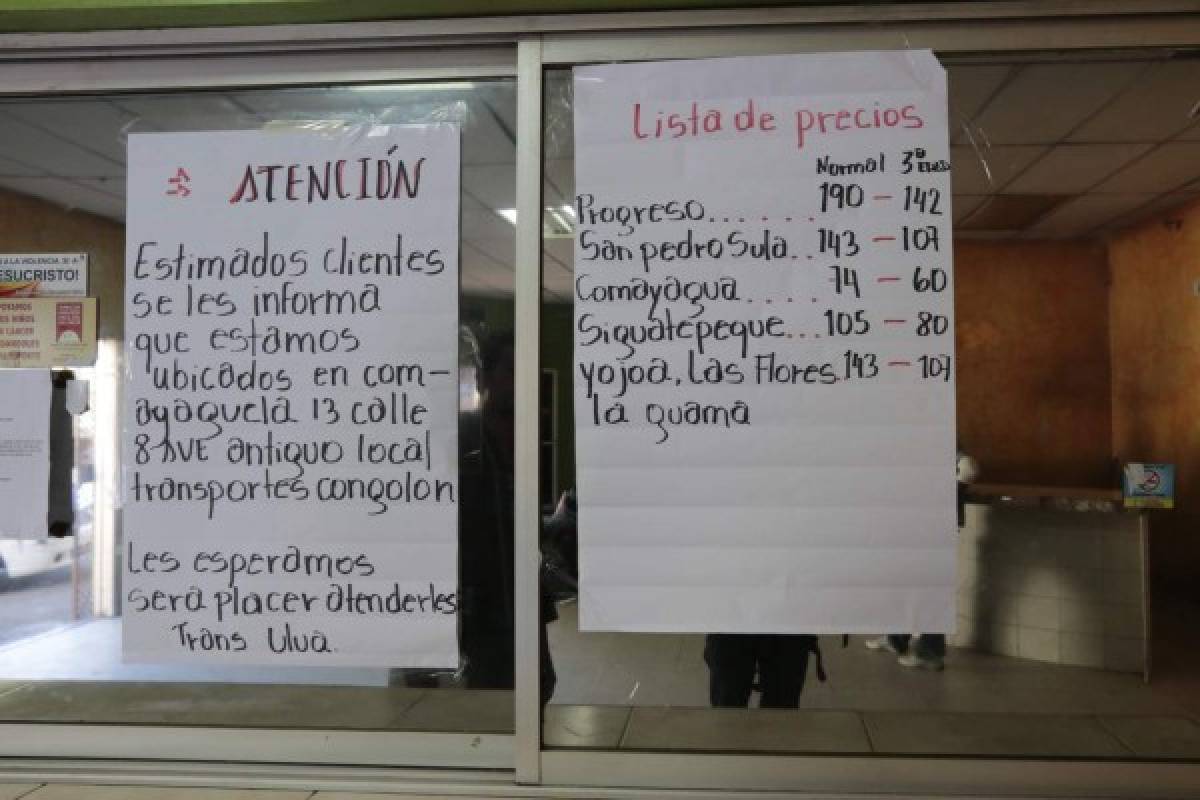 A LA VIOLENCIA. SI A
ESUCRISTO!
ATENCIÓN
Estimados clientes
se les informa
que estamos
ubicados en com-
ayaguela 13 calle
8 AVE antiguo local
transportes congolon
Les esperamos
será placer atenderles
Trans Ulua.
Lista de precios
Normal 3ª
Progreso...... 190 - 142
San pedro Sula.. 143 - 107
Comayagua..... 74 - 60
Siguatepeque... 105 - 80
yojoa, Las Flores. 143 - 107
la guama